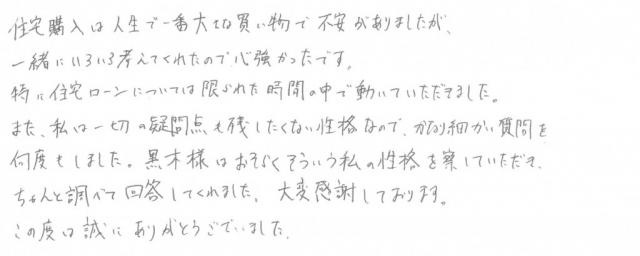 住宅購入は人生で一番大きな買い物で不安がありましたが、
一緒にいろいろ考えてくれたので心強かったです。
特に住宅ローンについては限られた時間の中で動いていただきました。
また、私は一切の疑問点も残したくない性格なので、かなり細かい質問を
何度もしました。黒木様はおそらくそういう私の性格を察していただき、
ちゃんと調べて回答してくれました。大変感謝しております。
この度は誠にありがとうございました。